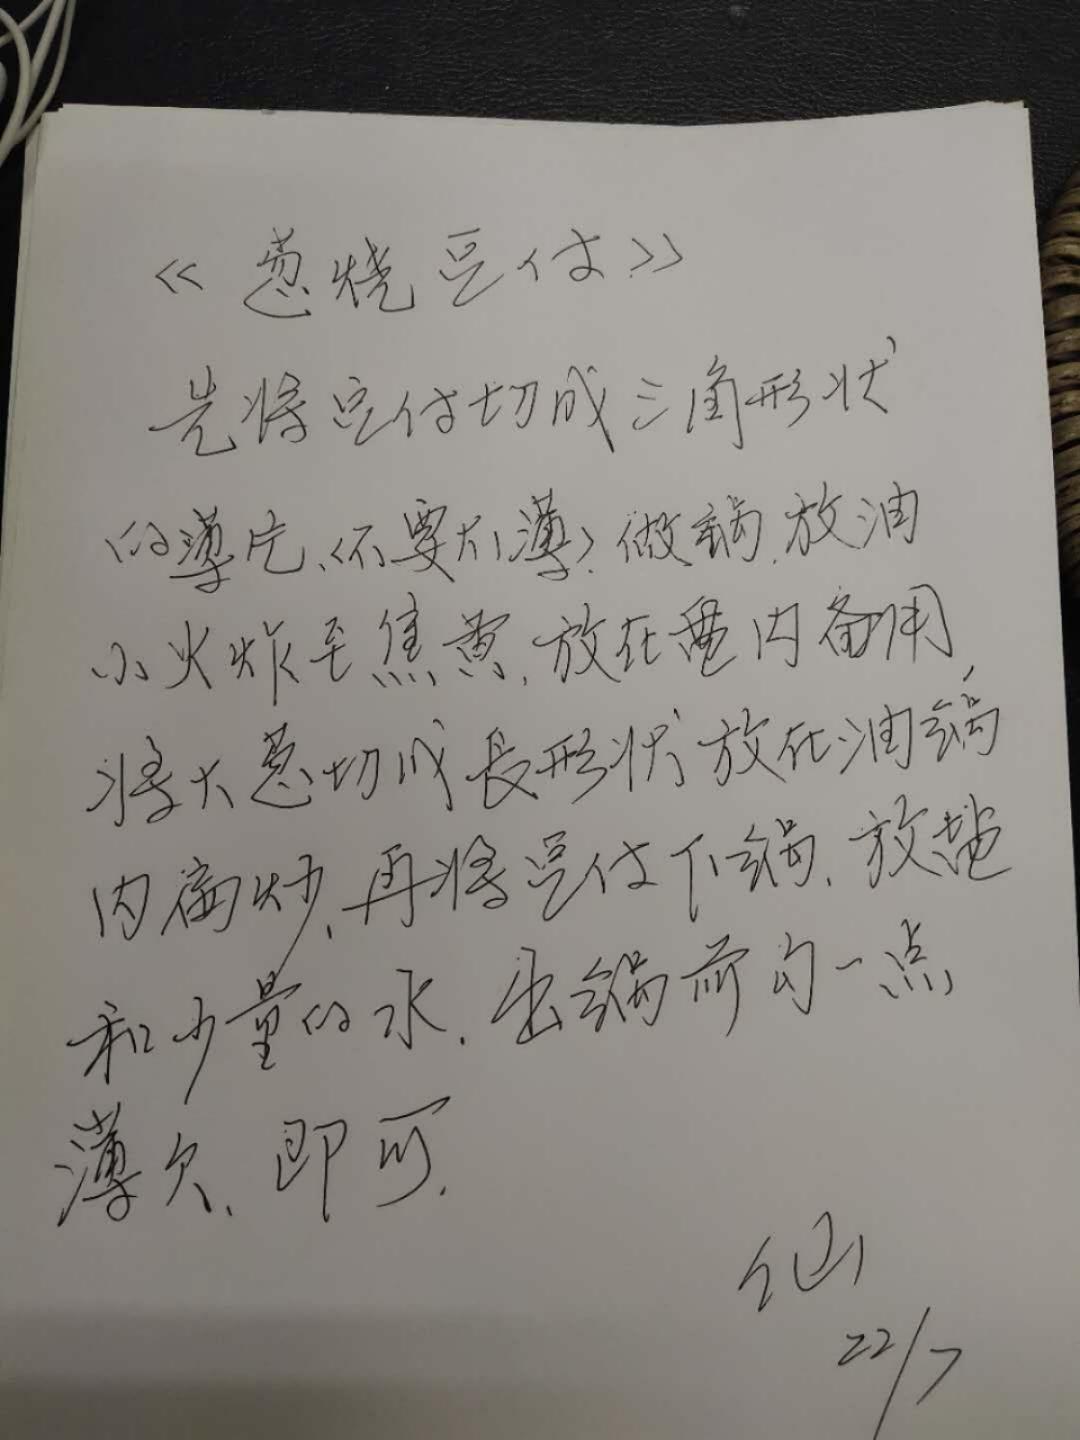 《葱烧豆付》
先将豆付切成三角形状
的薄片、(不要太薄)、做锅,放油
小火炸至焦黄,放在盘内备用,
将大葱切成长形状放在油锅
内扁炒,再将豆付下锅,放盐
和少量的水,出锅前勾一点
薄欠,即可.
仙
22/7